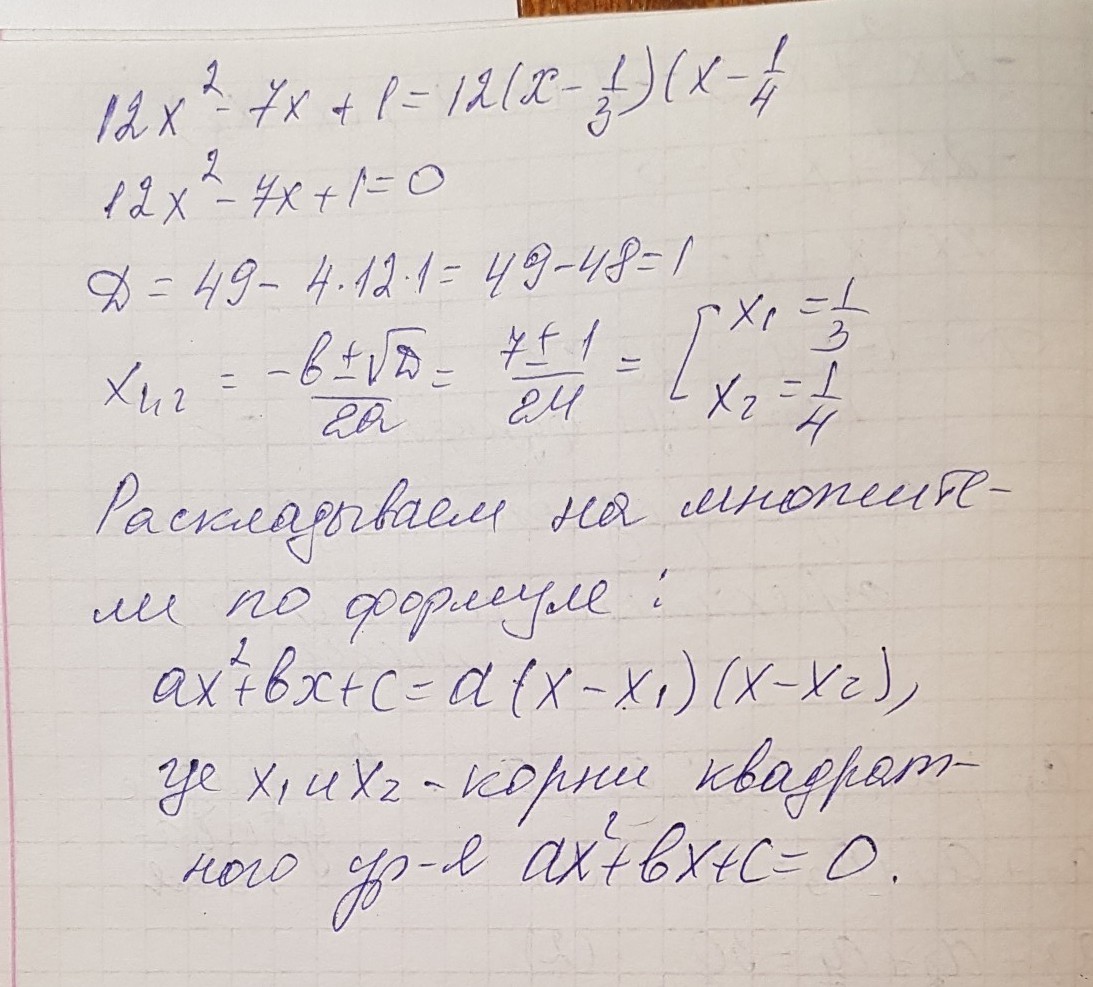 12x² - 7x + 1 = 12(x - 1/3)(x - 1/4
12x² - 7x + 1 = 0
D = 49 - 4·12·1 = 49 - 48 = 1
x₁,₂ = (-b ± √D)/2a = (7 ± 1)/24 = [ x₁ = 1/3
x₂ = 1/4
Раскладываем на множите-
ли по формуле:
ax² + bx + c = a(x - x₁)(x - x₂),
где x₁ и x₂ - корни квадрат-
ного ур-я ax² + bx + c = 0.